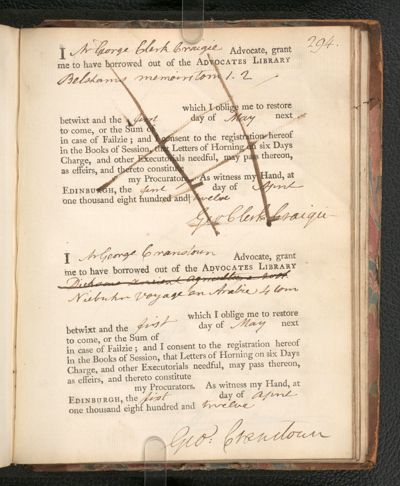 294.
I Mr George Clerk Craigie Advocate, grant
me to have borrowed out of the ADVOCATES LIBRARY
Belshams memoirs tom 1. 2
which I oblige me to restore
betwixt and the first day of May next
to come, or the Sum of
in case of Failzie; and I consent to the registration hereof
in the Books of Session, that Letters of Horning on six Days
Charge, and other Executorials needful, may pass thereon,
as effeirs, and thereto constitute
my Procurators. As witness my Hand, at
EDINBURGH, the first day of April
one thousand eight hundred and twelve
Geo Clerk Craigie
I Mr George Cranstoun Advocate, grant
me to have borrowed out of the ADVOCATES LIBRARY
Dicksons Ancient Agriculture
Niebuhr Voyage en Arabie 4 tom
which I oblige me to restore
betwixt and the first day of May next
to come, or the Sum of
in case of Failzie; and I consent to the registration hereof
in the Books of Session, that Letters of Horning on six Days
Charge, and other Executorials needful, may pass thereon,
as effeirs, and thereto constitute
my Procurators. As witness my Hand, at
EDINBURGH, the first day of April
one thousand eight hundred and twelve
Geo. Cranstoun